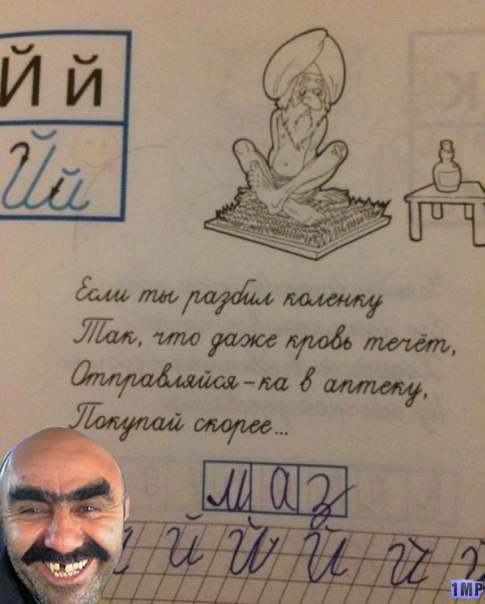 Й й
Й й
К
Если ты разбил коленку
Так, что даже кровь течёт,
Отправляйся-ка в аптеку,
Покупай скорее...
маз
й й й й й
1МР